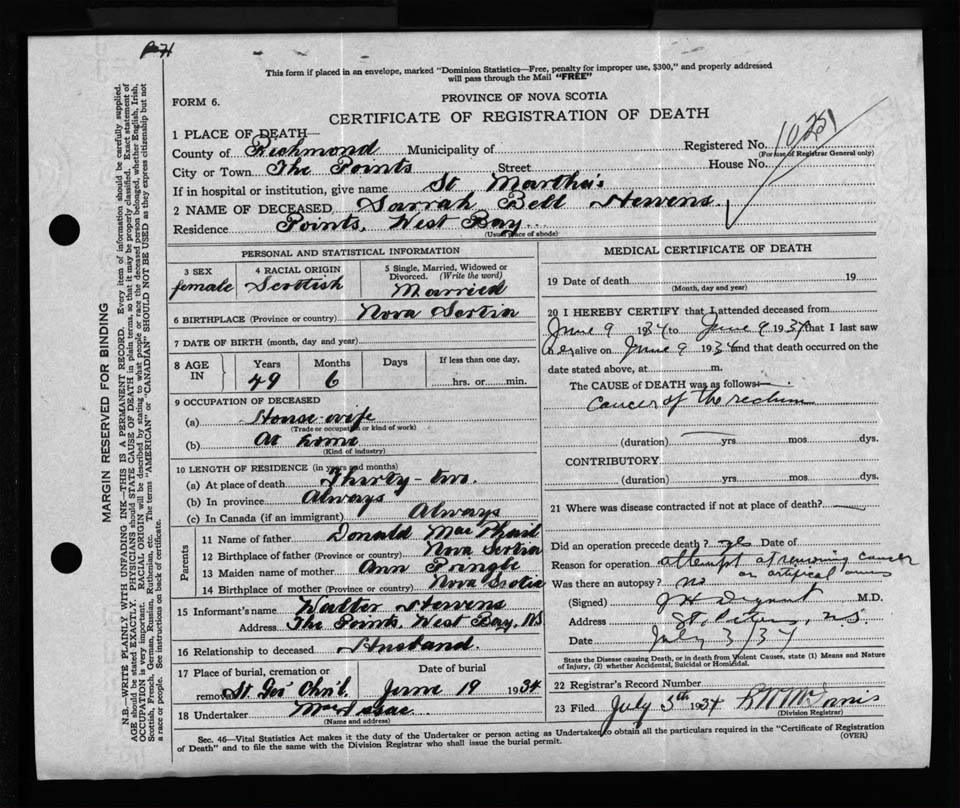 This form if placed in an envelope, marked "Dominion Statistics—Free, penalty for improper use, $300," and properly addressed
will pass through the Mail "FREE"
FORM 6.
PROVINCE OF NOVA SCOTIA
CERTIFICATE OF REGISTRATION OF DEATH
1 PLACE OF DEATH—
Registered No.
(For use of Registrar General only)
County of Richmond Municipality of
City or Town The Points Street House No.
If in hospital or institution, give name St Martha's
2 NAME OF DECEASED Sarrah Bell Stewens
Residence Points, West Bay
(Usual place of abode)
PERSONAL AND STATISTICAL INFORMATION
3 SEX female
4 RACIAL ORIGIN Scottish
5 Single, Married, Widowed or
Divorced. (Write the word)
Married
6 BIRTHPLACE (Province or country) Nova Scotia
7 DATE OF BIRTH (month, day and year)
8 AGE IN Years 49 Months 6 Days If less than one day, hrs. or min.
9 OCCUPATION OF DECEASED
(a) House wife
(Trade or occupation or kind of work)
(b) At home
(Kind of industry)
10 LENGTH OF RESIDENCE (in years and months)
(a) At place of death Thirty-two.
(b) In province Always
(c) In Canada (if an immigrant) Always
Parents
11 Name of father Donald MacPhail
12 Birthplace of father (Province or country) Nova Scotia
13 Maiden name of mother Ann Pringle
14 Birthplace of mother (Province or country) Nova Scotia
15 Informant's name Walter Stewens
Address The Points, West Bay, NS
16 Relationship to deceased Husband.
17 Place of burial, cremation or removal
Date of burial
June 19 1934
18 Undertaker
(Name and address)
MEDICAL CERTIFICATE OF DEATH
19 Date of death 19
(Month, day and year)
20 I HEREBY CERTIFY that I attended deceased from
June 9 1934 to June 9 1934, that I last saw
her alive on June 9 1934 and that death occurred on the
date stated above, at m.
The CAUSE of DEATH was as follows—
Cancer of the rectum
(duration) yrs. mos. dys.
CONTRIBUTORY
(duration) yrs. mos. dys.
21 Where was disease contracted if not at place of death?
Did an operation precede death? yes Date of
Reason for operation attempt at removing cancer
or artifical anus
Was there an autopsy? no
(Signed) M.D.
Address St. Peters, N.S.
Date July 3/34
State the Disease causing Death, or in death from Violent Causes, state (1) Means and Nature
of Injury, (2) whether Accidental, Suicidal or Homicidal.
22 Registrar's Record Number
23 Filed July 5th 1934
(Division Registrar)
Sec. 46—Vital Statistics Act makes it the duty of the Undertaker or person acting as Undertaker to obtain all the particulars required in the "Certificate of Registration
of Death" and to file the same with the Division Registrar who shall issue the burial permit.
(OVER)
MARGIN RESERVED FOR BINDING
N.B.—WRITE PLAINLY WITH UNFADING INK—THIS IS A PERMANENT RECORD. Every item of information should be carefully supplied.
AGE should be stated EXACTLY. PHYSICIANS should STATE CAUSE OF DEATH in plain terms, so that it may be properly classified. Exact statement of
OCCUPATION is very important. RACIAL ORIGIN will be described by stating to what people or race the deceased person belonged, whether English, Irish,
Scottish, French, German, Russian, Ruthenian, etc. The terms "AMERICAN" or "CANADIAN" SHOULD NOT BE USED as they express citizenship but not
a race or people. See instructions on back of certificate.